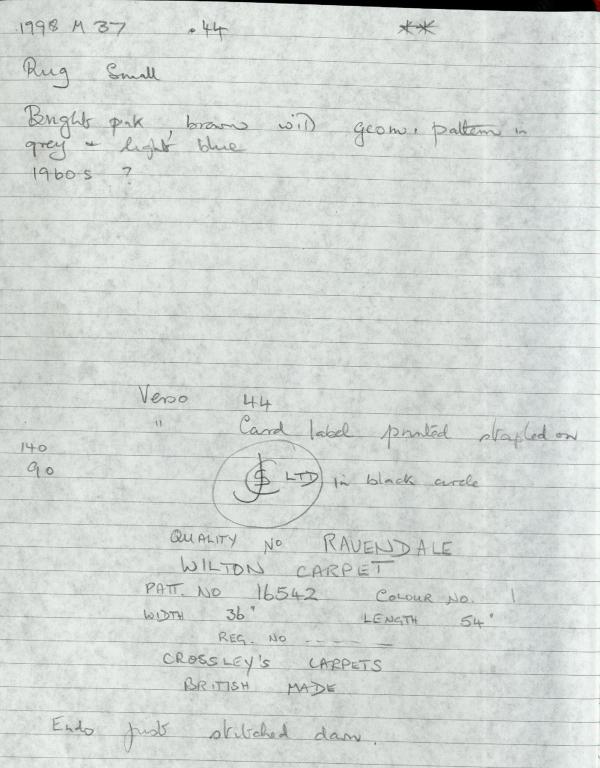 1998 M 37 .44 **
Rug Small
Bright pink, brown with geom. pattern in
grey + light blue
1960s ?
Verso 44
" Card label printed stapled on
140
90
LTD in black circle
QUALITY No RAVENDALE
WILTON CARPET
PATT. NO 16542 COLOUR NO. 1
WIDTH 36" LENGTH 54"
REG. NO -----
CROSSLEY'S CARPETS
BRITISH MADE
Ends just stitched down.